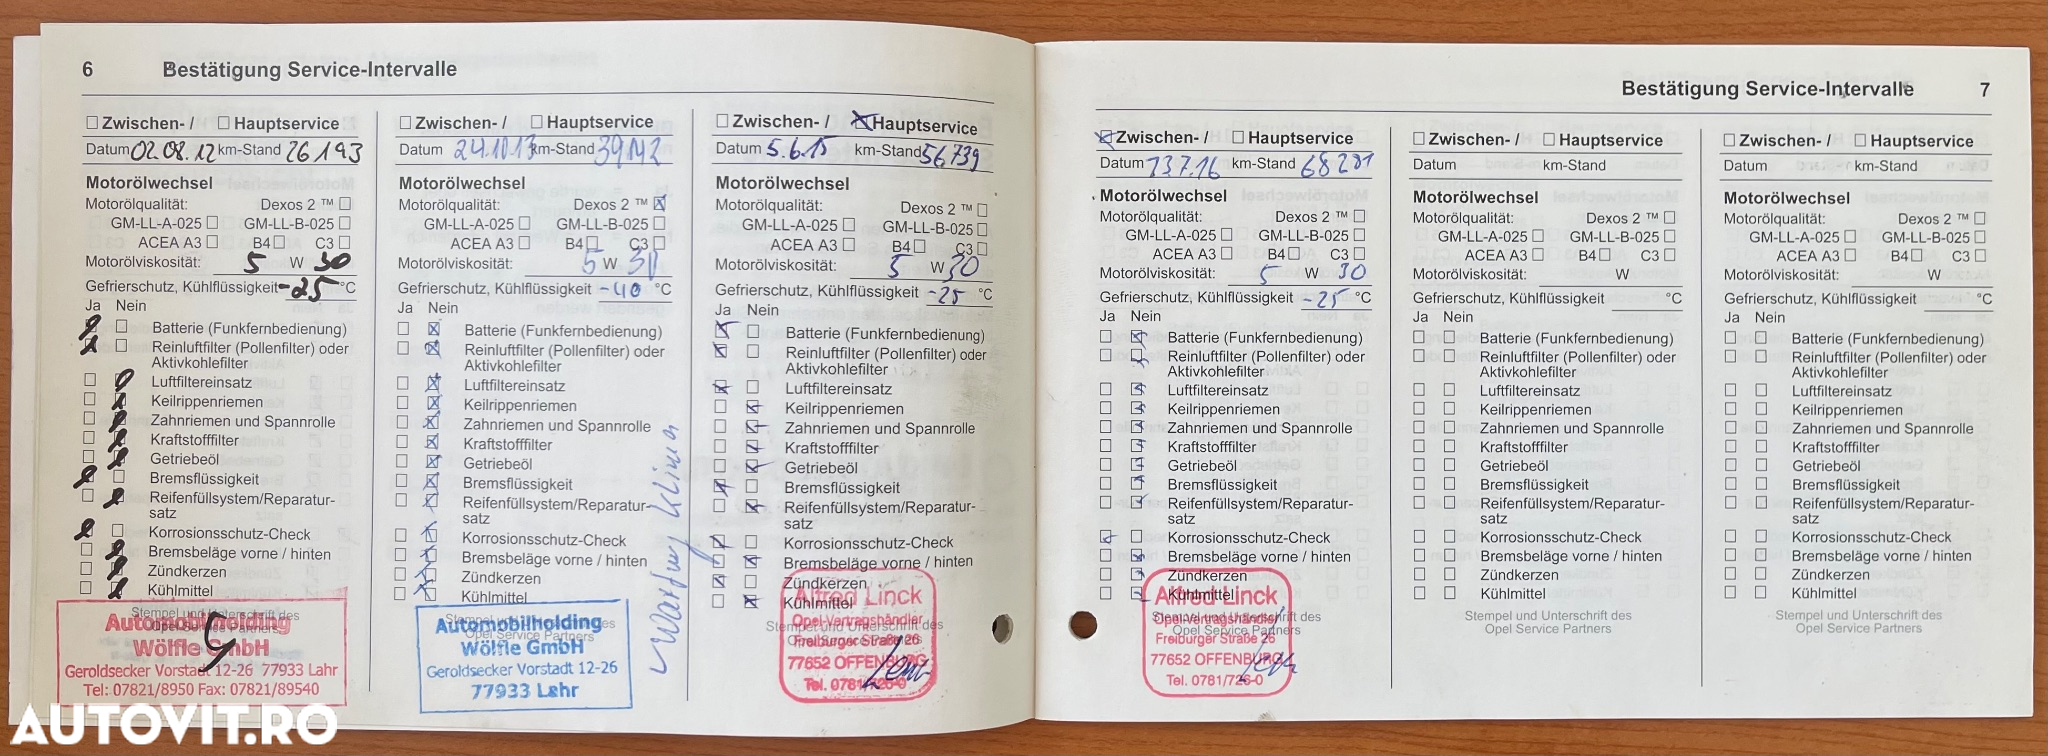 6 Bestätigung Service-Intervalle
☐ Zwischen- / ☐ Hauptservice
Datum 02.08.12 km-Stand 26193
Motorölwechsel
Motorölqualität: Dexos 2 ™ ☐
GM-LL-A-025 ☐ GM-LL-B-025 ☐
ACEA A3 ☐ B4 ☐ C3 ☐
Motorölviskosität: 5 W 30
Gefrierschutz, Kühlflüssigkeit -25 °C
Ja Nein
Batterie (Funkfernbedienung)
Reinluftfilter (Pollenfilter) oder
Aktivkohlefilter
Luftfiltereinsatz
Keilrippenriemen
Zahnriemen und Spannrolle
Kraftstofffilter
Getriebeöl
Bremsflüssigkeit
Reifenfüllsystem/Reparatur-
satz
Korrosionsschutz-Check
Bremsbeläge vorne / hinten
Zündkerzen
Kühlmittel
Stempel und Unterschrift des
Opel Service Partners
Automobilholding
Wölfle GmbH
Geroldsecker Vorstadt 12-26 77933 Lahr
Tel: 07821/8950 Fax: 07821/89540
☐ Zwischen- / ☐ Hauptservice
Datum 24.10.13 km-Stand 39142
Motorölwechsel
Motorölqualität: Dexos 2 ™ ☒
GM-LL-A-025 ☐ GM-LL-B-025 ☐
ACEA A3 ☐ B4 ☐ C3 ☐
Motorölviskosität: 5 W 30
Gefrierschutz, Kühlflüssigkeit -40 °C
Ja Nein
Batterie (Funkfernbedienung)
Reinluftfilter (Pollenfilter) oder
Aktivkohlefilter
Luftfiltereinsatz
Keilrippenriemen
Zahnriemen und Spannrolle
Kraftstofffilter
Getriebeöl
Bremsflüssigkeit
Reifenfüllsystem/Reparatur-
satz
Korrosionsschutz-Check
Bremsbeläge vorne / hinten
Zündkerzen
Kühlmittel
Automobilholding
Wölfle GmbH
Geroldsecker Vorstadt 12-26
77933 Lahr
Wartung Klima
☐ Zwischen- / ☒ Hauptservice
Datum 5.6.15 km-Stand 56739
Motorölwechsel
Motorölqualität: Dexos 2 ™ ☐
GM-LL-A-025 ☐ GM-LL-B-025 ☐
ACEA A3 ☐ B4 ☐ C3 ☐
Motorölviskosität: 5 W 30
Gefrierschutz, Kühlflüssigkeit -25 °C
Ja Nein
Batterie (Funkfernbedienung)
Reinluftfilter (Pollenfilter) oder
Aktivkohlefilter
Luftfiltereinsatz
Keilrippenriemen
Zahnriemen und Spannrolle
Kraftstofffilter
Getriebeöl
Bremsflüssigkeit
Reifenfüllsystem/Reparatur-
satz
Korrosionsschutz-Check
Bremsbeläge vorne / hinten
Zündkerzen
Kühlmittel
Alfred Linck
Opel-Vertragshändler
Freiburger Straße 26
77652 OFFENBURG
Tel. 0781/726-0
Bestätigung Service-Intervalle 7
☒ Zwischen- / ☐ Hauptservice
Datum 13.7.16 km-Stand 68281
Motorölwechsel
Motorölqualität: Dexos 2 ™ ☐
GM-LL-A-025 ☐ GM-LL-B-025 ☐
ACEA A3 ☐ B4 ☐ C3 ☐
Motorölviskosität: 5 W 30
Gefrierschutz, Kühlflüssigkeit -25 °C
Ja Nein
Batterie (Funkfernbedienung)
Reinluftfilter (Pollenfilter) oder
Aktivkohlefilter
Luftfiltereinsatz
Keilrippenriemen
Zahnriemen und Spannrolle
Kraftstofffilter
Getriebeöl
Bremsflüssigkeit
Reifenfüllsystem/Reparatur-
satz
Korrosionsschutz-Check
Bremsbeläge vorne / hinten
Zündkerzen
Kühlmittel
Alfred Linck
Opel-Vertragshändler
Freiburger Straße 26
77652 OFFENBURG
Tel. 0781/726-0
☐ Zwischen- / ☐ Hauptservice
Datum km-Stand
Motorölwechsel
Motorölqualität: Dexos 2 ™ ☐
GM-LL-A-025 ☐ GM-LL-B-025 ☐
ACEA A3 ☐ B4 ☐ C3 ☐
Motorölviskosität: W
Gefrierschutz, Kühlflüssigkeit °C
Ja Nein
Batterie (Funkfernbedienung)
Reinluftfilter (Pollenfilter) oder
Aktivkohlefilter
Luftfiltereinsatz
Keilrippenriemen
Zahnriemen und Spannrolle
Kraftstofffilter
Getriebeöl
Bremsflüssigkeit
Reifenfüllsystem/Reparatur-
satz
Korrosionsschutz-Check
Bremsbeläge vorne / hinten
Zündkerzen
Kühlmittel
Stempel und Unterschrift des
Opel Service Partners
☐ Zwischen- / ☐ Hauptservice
Datum km-Stand
Motorölwechsel
Motorölqualität: Dexos 2 ™ ☐
GM-LL-A-025 ☐ GM-LL-B-025 ☐
ACEA A3 ☐ B4 ☐ C3 ☐
Motorölviskosität: W
Gefrierschutz, Kühlflüssigkeit °C
Ja Nein
Batterie (Funkfernbedienung)
Reinluftfilter (Pollenfilter) oder
Aktivkohlefilter
Luftfiltereinsatz
Keilrippenriemen
Zahnriemen und Spannrolle
Kraftstofffilter
Getriebeöl
Bremsflüssigkeit
Reifenfüllsystem/Reparatur-
satz
Korrosionsschutz-Check
Bremsbeläge vorne / hinten
Zündkerzen
Kühlmittel
Stempel und Unterschrift des
Opel Service Partners
AUTOVIT.RO